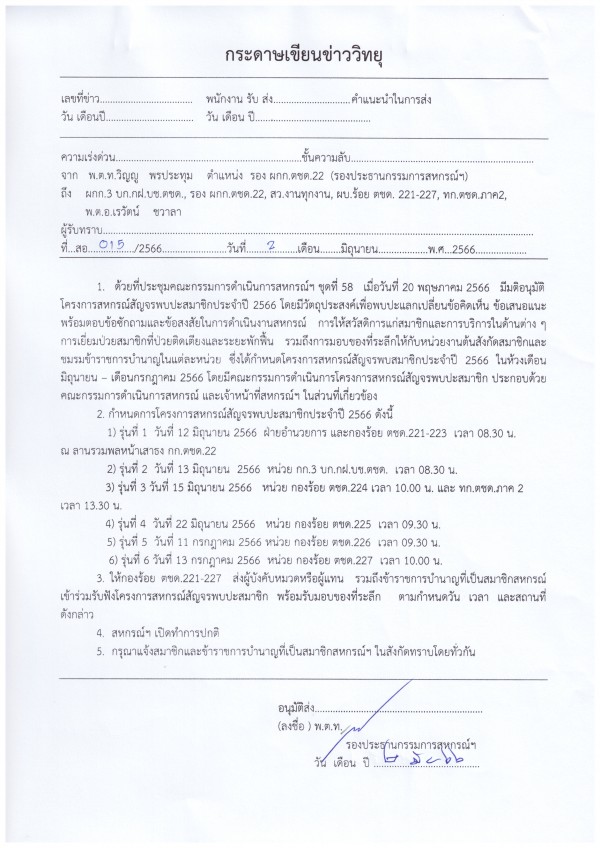 กระดาษเขียนข่าววิทยุ
เลขที่ข่าว.................................. พนักงาน รับ ส่ง............................คำแนะนำในการส่ง
วัน เดือนปี................................ วัน เดือน ปี..........................................
ความเร่งด่วน....................................................................ชั้นความลับ..................................................................
จาก พ.ต.ท.วิญญู พรประทุม ตำแหน่ง รอง ผกก.ตชด.22 (รองประธานกรรมการสหกรณ์ฯ)
ถึง ผกก.3 บก.กฝ.บช.ตชด., รอง ผกก.ตชด.22, สว.งานทุกงาน, ผบ.ร้อย ตชด. 221-227, ทก.ตชด.ภาค2,
พ.ต.อ.เรวัตน์ ชวาลา
ผู้รับทราบ............................................................................................................................................................
ที่...สอ....015...../2566.......................วันที่.....2........เดือน........มิถุนายน..................พ.ศ...2566...................
1. ด้วยที่ประชุมคณะกรรมการดำเนินการสหกรณ์ฯ ชุดที่ 58 เมื่อวันที่ 20 พฤษภาคม 2566 มีมติอนุมัติ
โครงการสหกรณ์สัญจรพบปะสมาชิกประจำปี 2566 โดยมีวัตถุประสงค์เพื่อพบปะแลกเปลี่ยนข้อคิดเห็น ข้อเสนอแนะ
พร้อมตอบข้อซักถามและข้อสงสัยในการดำเนินงานสหกรณ์ การให้สวัสดิการแก่สมาชิกและการบริการในด้านต่าง ๆ
การเยี่ยมป่วยสมาชิกที่ป่วยติดเตียงและระยะพักฟื้น รวมถึงการมอบของที่ระลึกให้กับหน่วยงานต้นสังกัดสมาชิกและ
ชมรมข้าราชการบำนาญในแต่ละหน่วย ซึ่งได้กำหนดโครงการสหกรณ์สัญจรพบสมาชิกประจำปี 2566 ในห้วงเดือน
มิถุนายน – เดือนกรกฎาคม 2566 โดยมีคณะกรรมการดำเนินการโครงการสหกรณ์สัญจรพบปะสมาชิก ประกอบด้วย
คณะกรรมการดำเนินการสหกรณ์ และเจ้าหน้าที่สหกรณ์ฯ ในส่วนที่เกี่ยวข้อง
2. กำหนดการโครงการสหกรณ์สัญจรพบปะสมาชิกประจำปี 2566 ดังนี้
1) รุ่นที่ 1 วันที่ 12 มิถุนายน 2566 ฝ่ายอำนวยการ และกองร้อย ตชด.221-223 เวลา 08.30 น.
ณ ลานรวมพลหน้าเสาธง กก.ตชด.22
2) รุ่นที่ 2 วันที่ 13 มิถุนายน 2566 หน่วย กก.3 บก.กฝ.บช.ตชด. เวลา 08.30 น.
3) รุ่นที่ 3 วันที่ 15 มิถุนายน 2566 หน่วย กองร้อย ตชด.224 เวลา 10.00 น. และ ทก.ตชด.ภาค 2
เวลา 13.30 น.
4) รุ่นที่ 4 วันที่ 22 มิถุนายน 2566 หน่วย กองร้อย ตชด.225 เวลา 09.30 น.
5) รุ่นที่ 5 วันที่ 11 กรกฎาคม 2566 หน่วย กองร้อย ตชด.226 เวลา 09.30 น.
6) รุ่นที่ 6 วันที่ 13 กรกฎาคม 2566 หน่วย กองร้อย ตชด.227 เวลา 10.00 น.
3. ให้กองร้อย ตชด.221-227 ส่งผู้บังคับหมวดหรือผู้แทน รวมถึงข้าราชการบำนาญที่เป็นสมาชิกสหกรณ์
เข้าร่วมรับฟังโครงการสหกรณ์สัญจรพบปะสมาชิก พร้อมรับมอบของที่ระลึก ตามกำหนดวัน เวลา และสถานที่
ดังกล่าว
4. สหกรณ์ฯ เปิดทำการปกติ
5. กรุณาแจ้งสมาชิกและข้าราชการบำนาญที่เป็นสมาชิกสหกรณ์ฯ ในสังกัดทราบโดยทั่วกัน
อนุมัติส่ง.............................................................
(ลงชื่อ ) พ.ต.ท.
รองประธานกรรมการสหกรณ์ฯ
วัน เดือน ปี ๒ มิย ๖๖